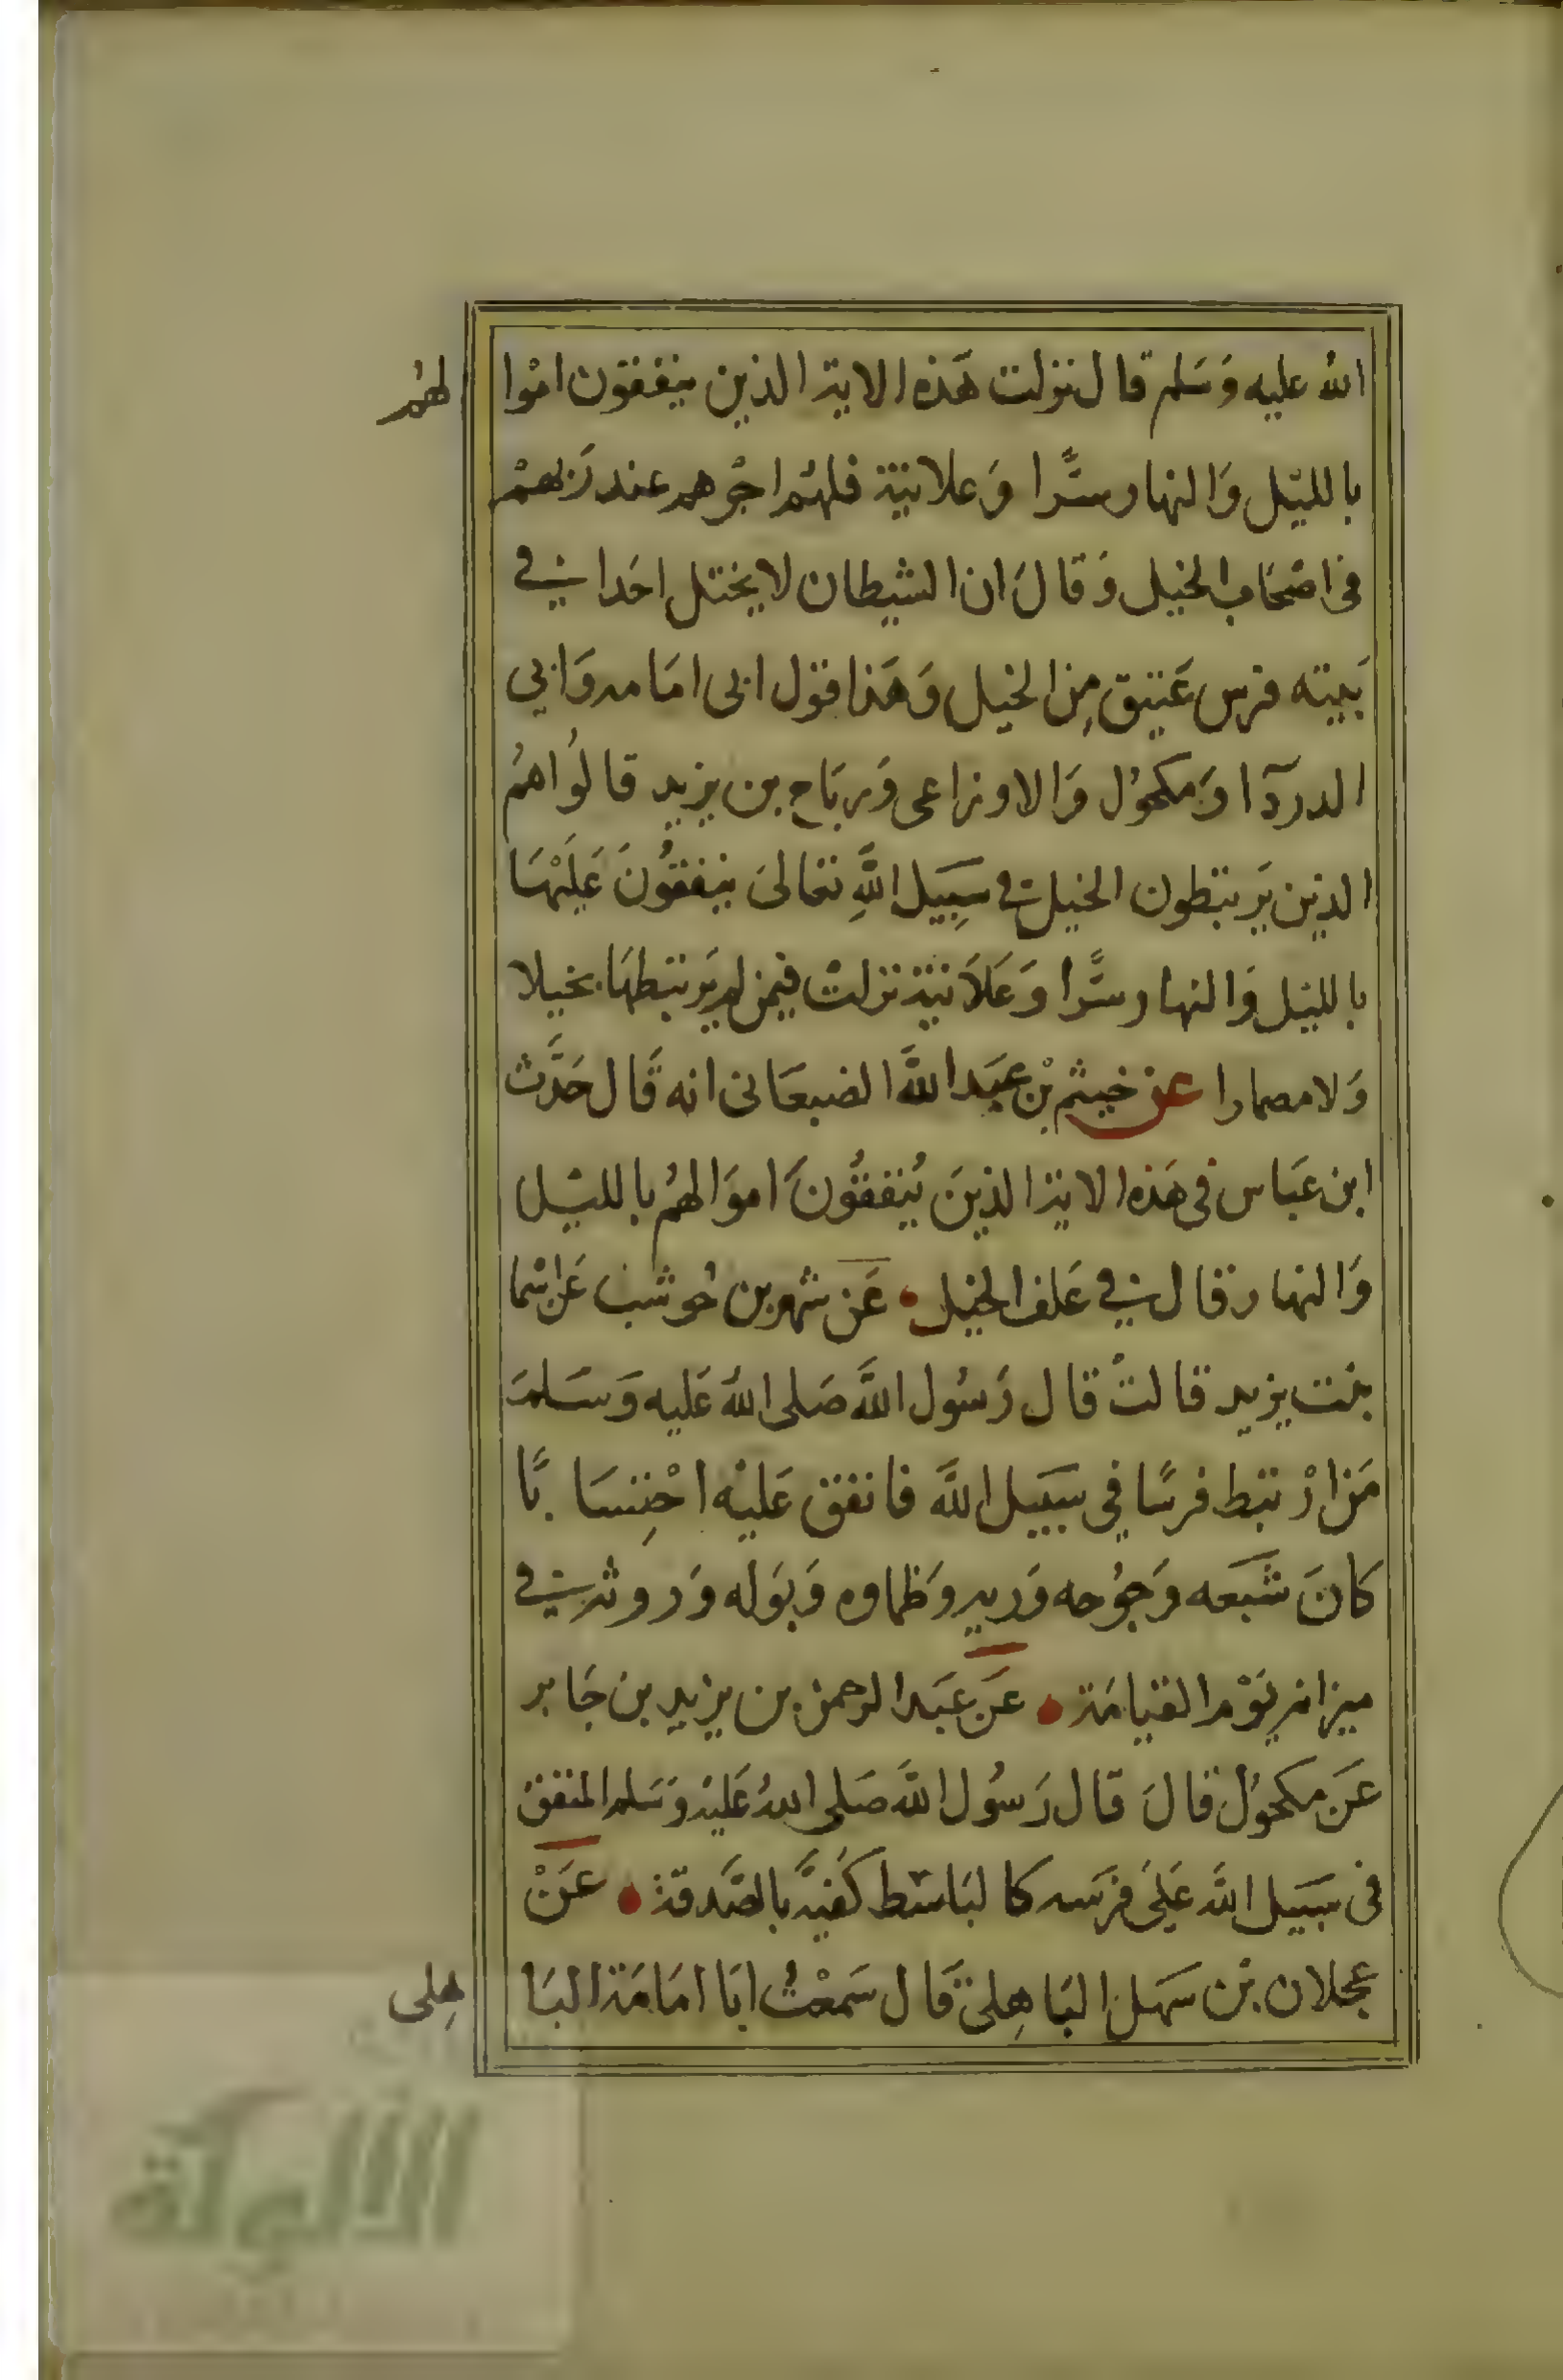 الله عليه وَسَلم قال نزلت هَذه الاية الذين ينفقون امْوا لهُم
بالليْل وَالنهار سِرًّا وَعلانية فلهُم اجْرهم عند رَبهمْ
فى اصْحَاب الخيل وَقالَ ان الشيطان لا يختل احَدا في
بَيته فرس عَتيق مِن الخيل وَهَذا قول ابى امَامه وَابي
الدردآ وَمكحوُل وَالاوزاعى وَرباح بن يزيد قالوُا هم
الذين يَرتبطون الخيل في سَبِيَل اللهِ تعَالىَ ينفقُونَ عَليْهَا
بالليْل وَالنهار سرًّا وَعَلاَنية نزلتْ فيمن لم يَرتبطهَا بخيلا
وَلا مصمارا عن خيثم بْن عبَد اللهَّ الصنعَانى انه قال حَدَّث
ابن عَباس فى هَذه الاية الذينَ يُنفقُونَ اموَالهُم بالليْل
وَالنهار قال في عَلف الخيل عَن شهر بن حُوشب عَن اسْما
بنت يزيد قالتْ قال رَسُول اللهَّ صَلى اللهُ عَليه وَسَلمَ
مَن ارْتبَط فرسًا في سبَيل اللهَّ فانفق عَليْه احْتِسَابًا
كانَ شَبَعه وَجوُعه وَريه وَظماوه وَبوَله وَروثه في
ميزانه يَوْم القيامَة عَن عَبَد الرحمن بن يزيد بن جَابر
عَن مكحوُل قالَ قال رَسُول اللهَّ صَلى اللهُ عَليْه وَسَلم المنفق
فى سَبيَل اللهَّ عَلىَ فرَسه كالبَاسَط كَفيَّه بالصَّدقة عَنْ
عجلان بْن سهَل البَاهِلىّ قَال سَمعْتُ ابَا امَامَة البَا هِلى
الألوكة